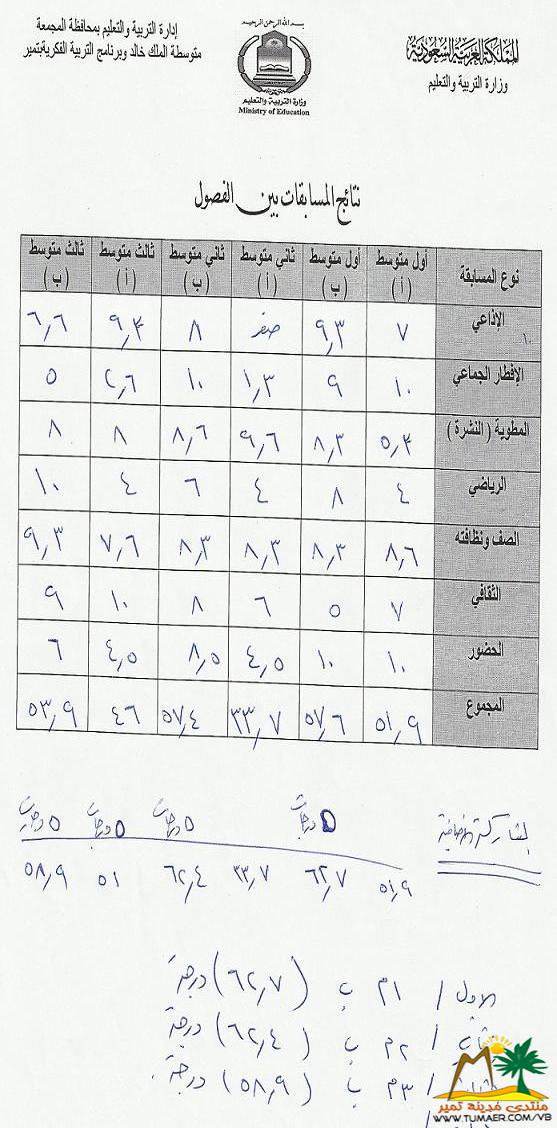 المملكة العربية السعودية
وزارة التربية والتعليم
بسم الله الرحمن الرحيم
وزارة التربية والتعليم
Ministry of Education
إدارة التربية والتعليم بمحافظة المجمعة
متوسطة الملك خالد وبرنامج التربية الفكرية بتمير
نتائج المسابقات بين الفصول
نوع المسابقة أول متوسط (أ) أول متوسط (ب) ثاني متوسط (أ) ثاني متوسط (ب) ثالث متوسط (أ) ثالث متوسط (ب)
الإذاعي ٧ ٩,٣ صفر ٨ ٩,٣ ٦,٦
الإفطار الجماعي ١٠ ٩ ١,٣ ١٠ ٢,٦ ٥
المطوية ( النشرة ) ٥,٣ ٨,٣ ٩,٦ ٨,٦ ٨ ٨
الرياضي ٤ ٨ ٤ ٦ ٤ ١٠
الصف ونظافته ٨,٦ ٨,٣ ٨,٣ ٨,٣ ٧,٦ ٩,٣
الثقافي ٧ ٥ ٦ ٨ ١٠ ٩
الحضور ١٠ ١٠ ٤,٥ ٨,٥ ٤,٥ ٦
المجموع ٥١,٩ ٥٧,٦ ٣٣,٧ ٥٧,٤ ٤٦ ٥٣,٩
٥ درجات ٥ درجات ٥ درجات ٥ درجات
٥١,٩ ٦٢,٧ ٣٣,٧ ٦٢,٤ ٥١ ٥٨,٩
الاول / ١م ب (٦٢,٧) درجة
٢م ب (٦٢,٤) درجة
٣م ب (٥٨,٩) درجة.
منتدى مدينة تمير
WWW.TUMAER.COM/VB